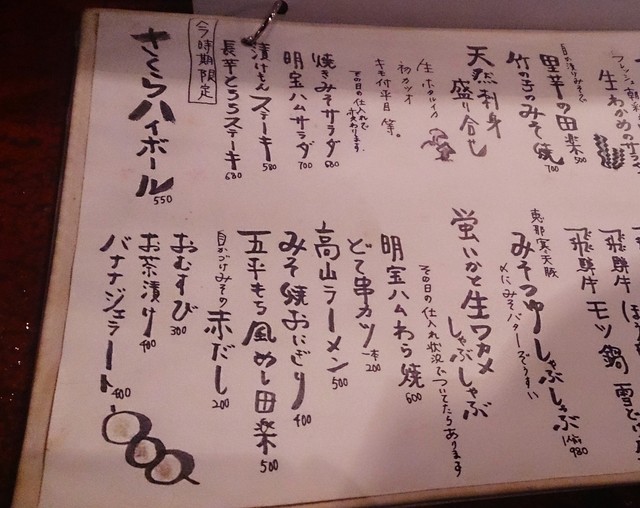 生わかめのサラ
自家漬けみその
里芋の田楽 500
竹の子のみそ焼 700
天然刺身
盛り合し
生ホタルイカ
初カツオ
キモ付平目 等。
その日の仕入れで
変わります。
焼きみそサラダ 680
明宝ハムサラダ 700
漬けもんステーキ 580
長芋とろろステーキ 680
今時期限定
さくらハイボール 550
飛騨牛
飛騨牛モツ鍋
恵那寒天豚
みそつゆしゃぶしゃぶ 980
〆にみそバターでうすい
蛍いかと生ワカメ
しゃぶしゃぶ
その日の仕入れ状況でついてたらあります
明宝ハムわら焼 600
どて串カツ 一本 200
高山ラーメン 500
みそ焼おにぎり 400
五平もち風めし田楽 500
自家づけみその赤だし 200
おむすび 300
お茶漬け 400
バナナジェラート 400